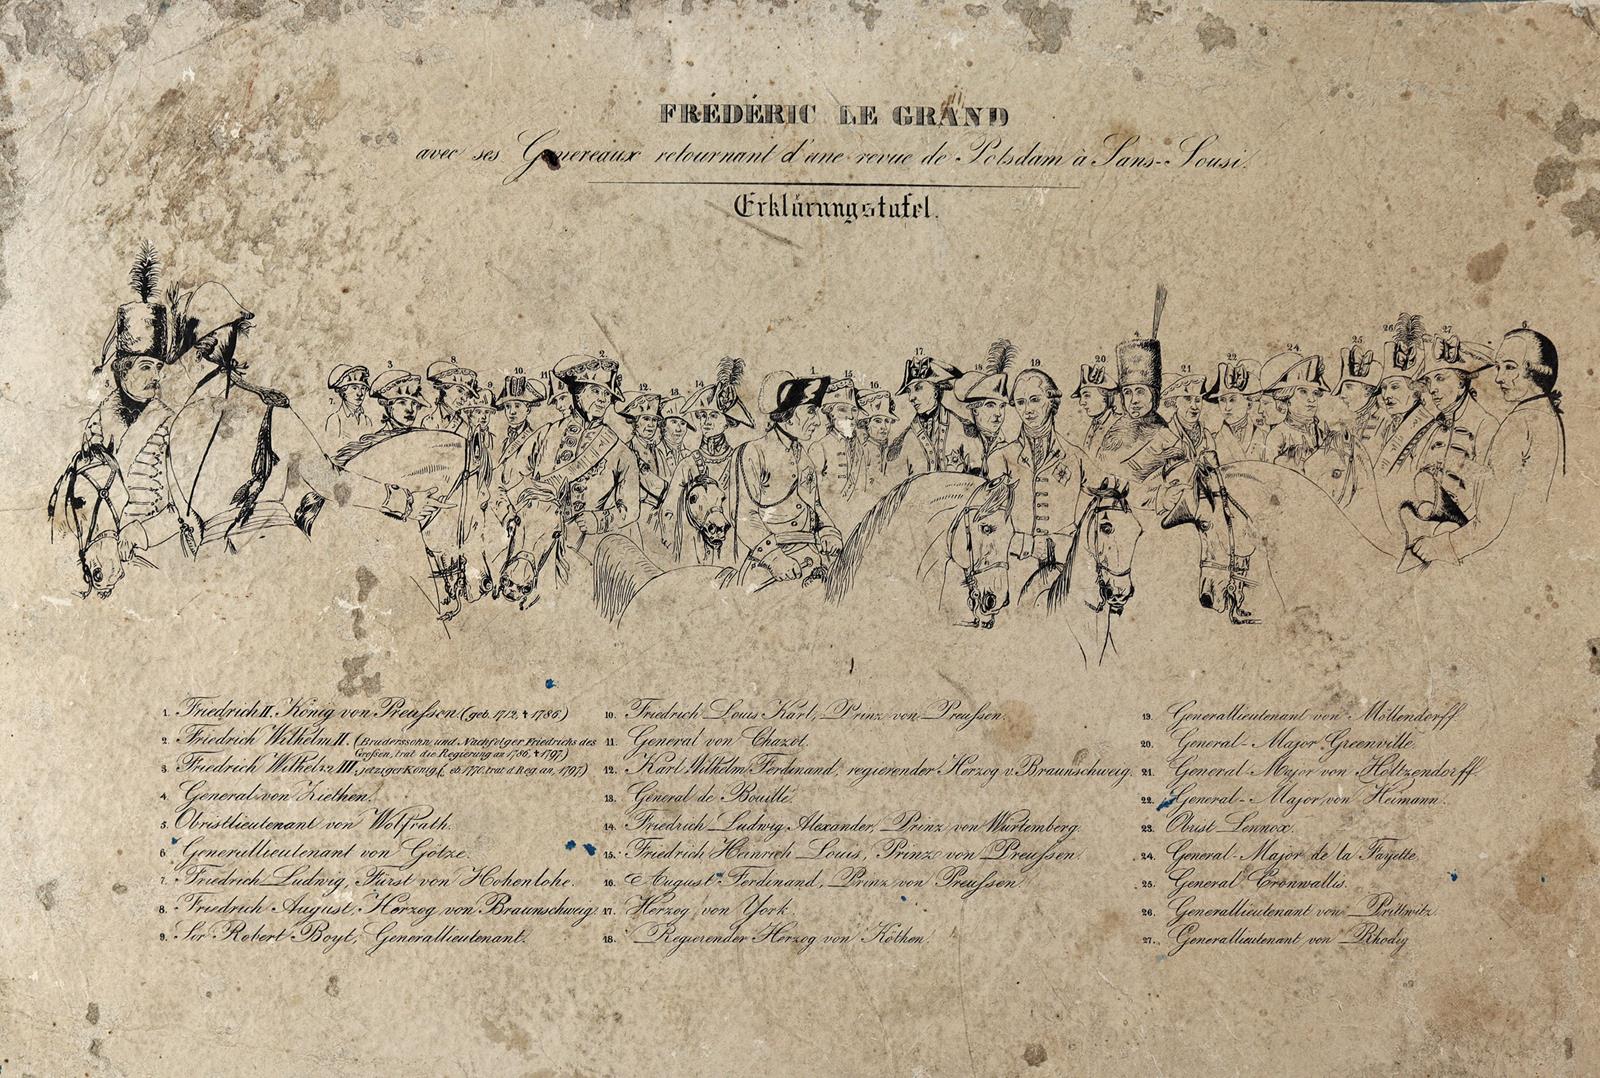 FRÉDÉRIC LE GRAND
avec ses Genereaux retournant d'une revue de Potsdam à Sans-Sousi.
Erklärungstafel.
1. Friedrich II. König von Preußen. (geb. 1712, † 1786)
2. Friedrich Wilhelm II. (Bruderssohn und Nachfolger Friedrichs des
Großen, trat die Regierung an 1786, † 1797)
3. Friedrich Wilhelm III, jetziger König, ( eb. 1770, trat d. Reg. an, 1797)
4. General von Ziethen.
5. Obristlieutenant von Wolfrath.
6. Generallieutenant von Götze.
7. Friedrich Ludwig, Fürst von Hohenlohe.
8. Friedrich August, Herzog von Braunschweig.
9. Sir Robert Boyt, Generallieutenant.
10. Friedrich Louis Karl, Prinz von Preußen.
11. General von Chazot.
12. Karl Wilhelm Ferdinand, regierender Herzog v. Braunschweig.
13. General de Bouillé.
14. Friedrich Ludwig Alexander, Prinz von Würtemberg.
15. Friedrich Heinrich Louis, Prinz von Preußen.
16. August Ferdinand, Prinz von Preußen
17. Herzog von York.
18. Regierender Herzog von Köthen.
19. Generallieutenant von Möllendorff.
20. General-Major Greenville.
21. General-Major von Holtzendorff.
22. General-Major von Heimann.
23. Obrist Lennox.
24. General-Major de la Fayette.
25. General Cronwallis.
26. Generallieutenant von Prittwitz.
27. Generallieutenant von Rhodig